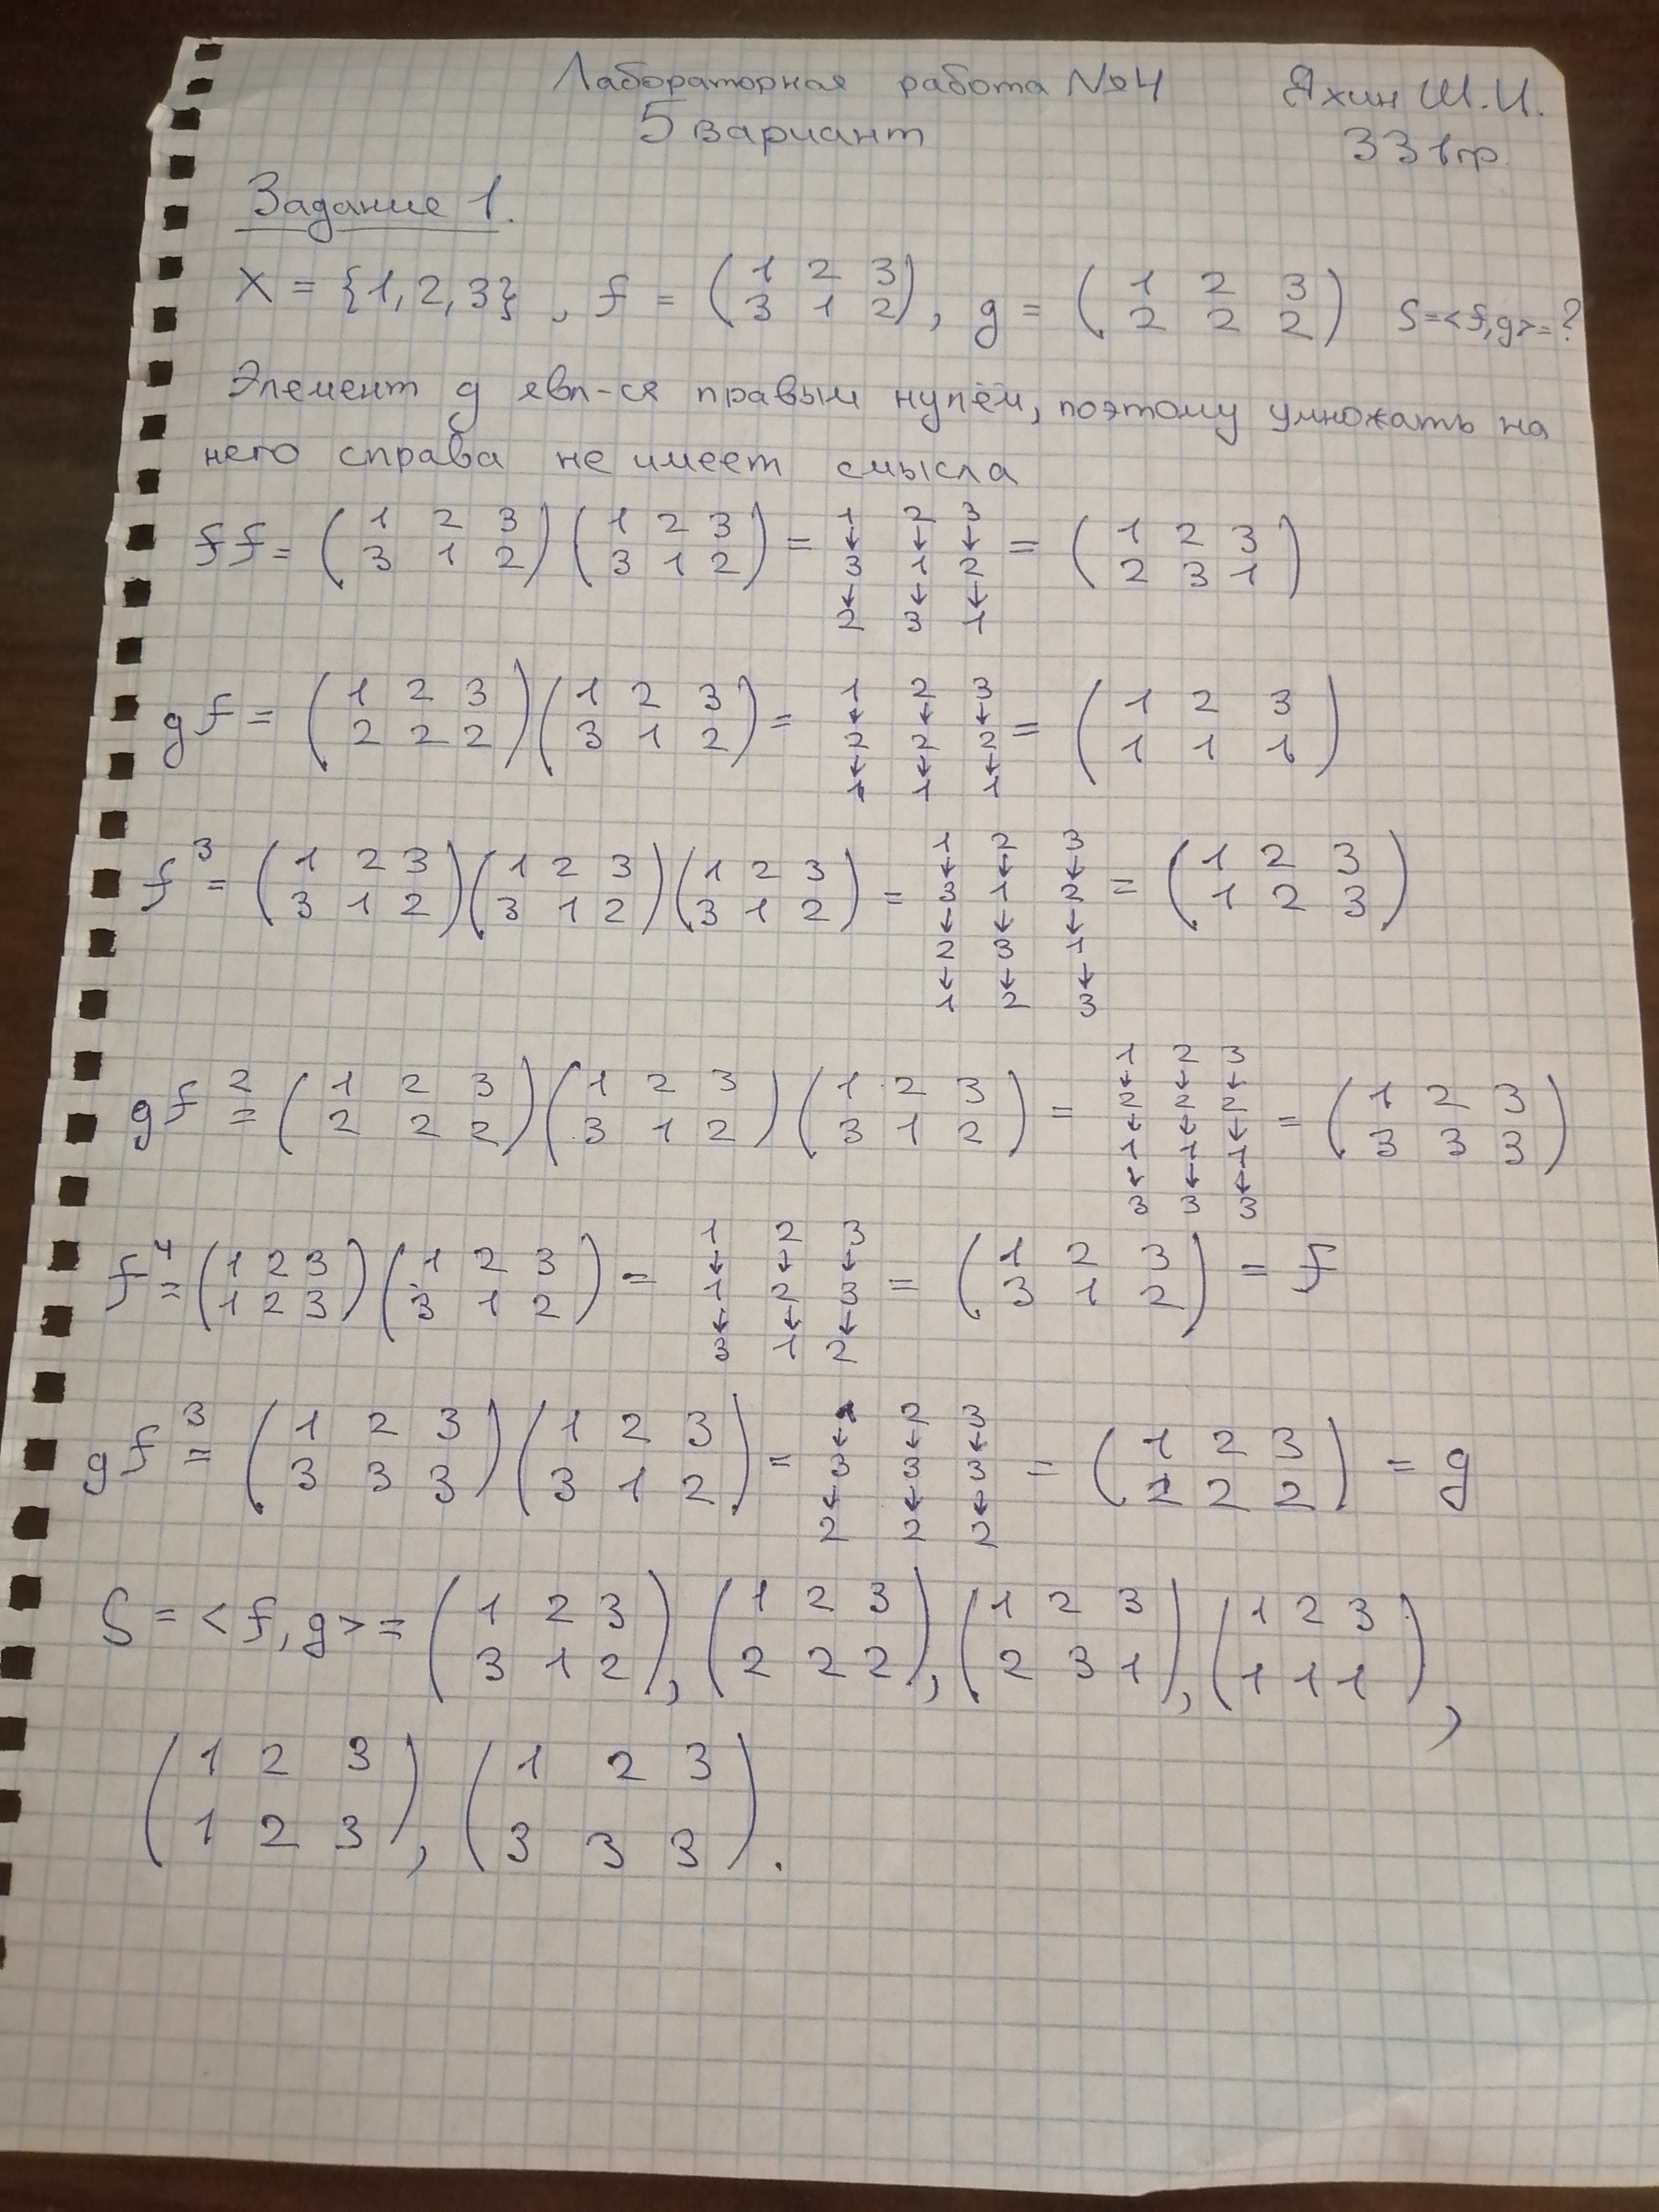 Лабораторная работа №4 Яхин Ш.И.
5 вариант 331гр.
Задание 1.
X = {1,2,3}, f = (1 2 3 / 3 1 2), g = (1 2 3 / 2 2 2) S=<f,g>=?
Элемент g явл-ся правым нулём, поэтому умножать на
него справа не имеет смысла
ff = (1 2 3 / 3 1 2)(1 2 3 / 3 1 2) = 1↓3↓2 2↓1↓3 3↓2↓1 = (1 2 3 / 2 3 1)
gf = (1 2 3 / 2 2 2)(1 2 3 / 3 1 2) = 1↓2↓1 2↓2↓1 3↓2↓1 = (1 2 3 / 1 1 1)
f³ = (1 2 3 / 3 1 2)(1 2 3 / 3 1 2)(1 2 3 / 3 1 2) = 1↓3↓2↓1 2↓1↓3↓2 3↓2↓1↓3 = (1 2 3 / 1 2 3)
gf² = (1 2 3 / 2 2 2)(1 2 3 / 3 1 2)(1 2 3 / 3 1 2) = 1↓2↓1↓3 2↓2↓1↓3 3↓2↓1↓3 = (1 2 3 / 3 3 3)
f⁴ = (1 2 3 / 1 2 3)(1 2 3 / 3 1 2) = 1↓1↓3 2↓2↓1 3↓3↓2 = (1 2 3 / 3 1 2) = f
gf³ = (1 2 3 / 3 3 3)(1 2 3 / 3 1 2) = 1↓3↓2 2↓3↓2 3↓3↓2 = (1 2 3 / 2 2 2) = g
S = <f,g> = (1 2 3 / 3 1 2), (1 2 3 / 2 2 2), (1 2 3 / 2 3 1), (1 2 3 / 1 1 1),
(1 2 3 / 1 2 3), (1 2 3 / 3 3 3).